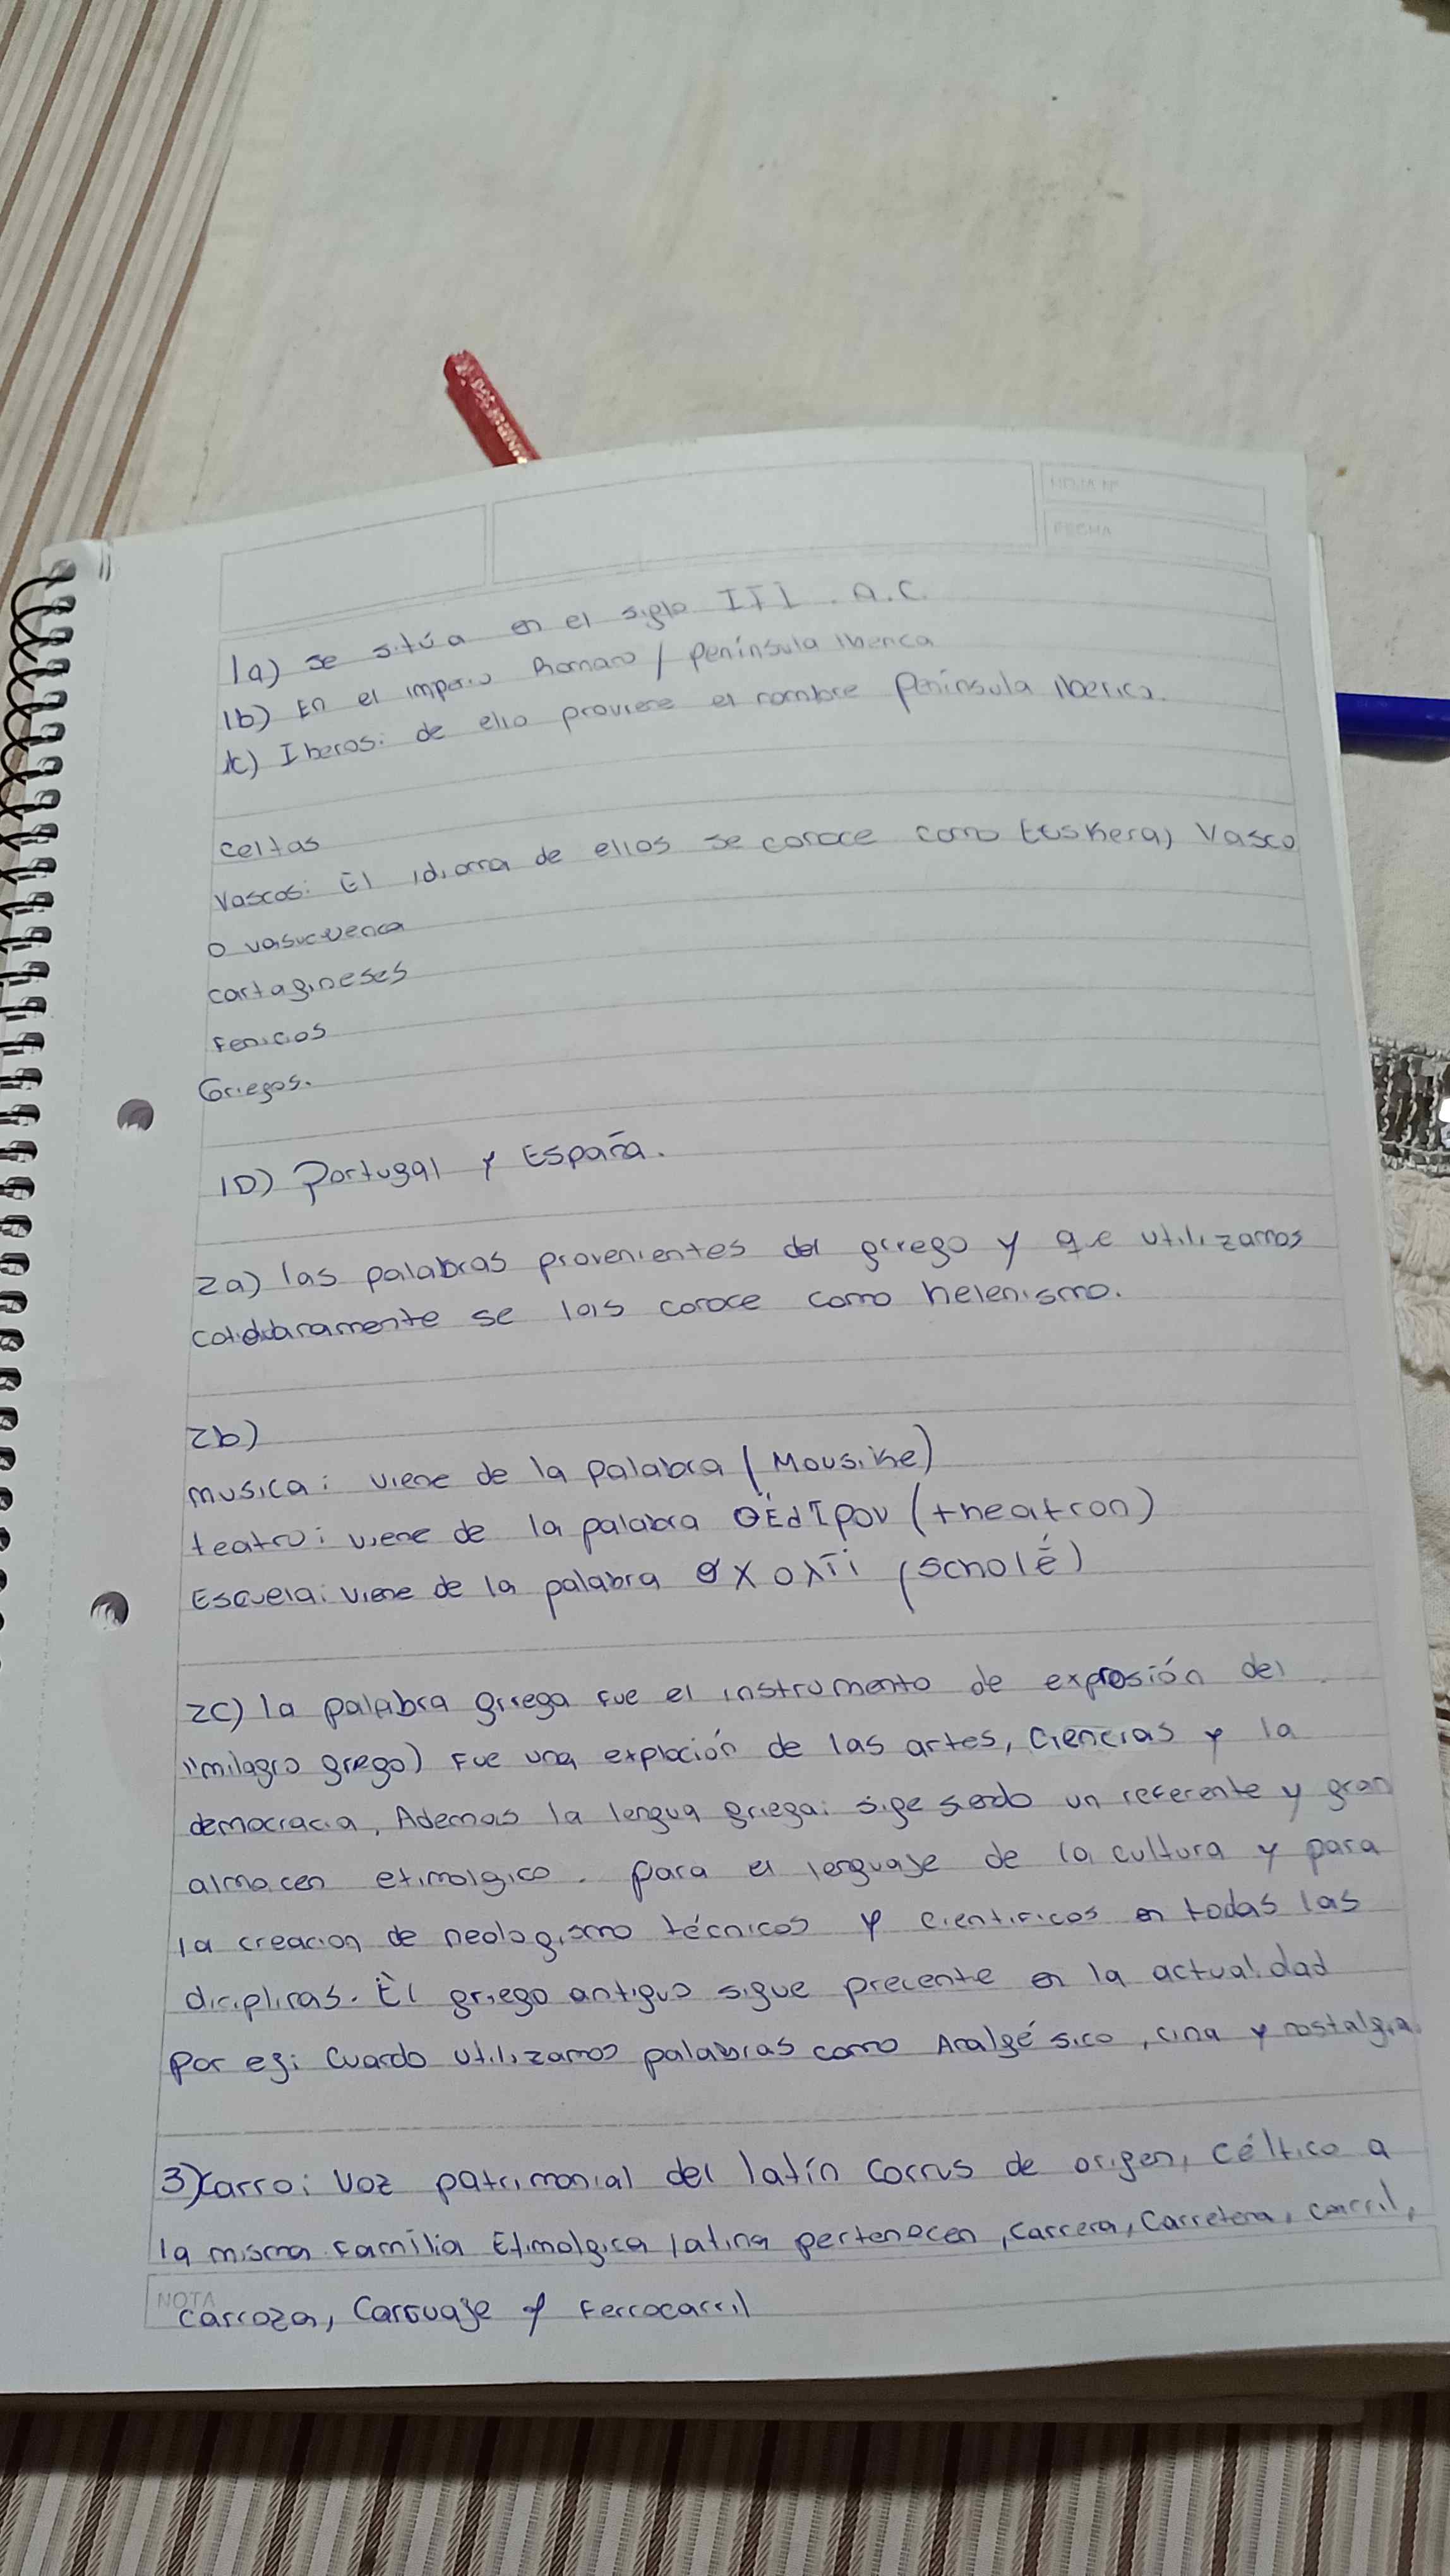 HOJA Nº
FECHA
1a) se sitúa en el siglo III . A.C.
1b) En el imperio Romano / península Iberica
1c) Iberos: de ello proviene el nombre Península Iberica.
celtas
Vascos: El idioma de ellos se conoce como Euskera, Vasco
o
cartagineses
Fenicios
Griegos.
1D) Portugal y España.
2a) las palabras provenientes del griego y que utilizamos
se las conoce como helenismo.
2b)
musica: viene de la palabra (Mousike)
teatro: viene de la palabra (theatron)
Escuela: viene de la palabra (scholé)
2c) la palabra griega fue el instrumento de expresión del
"milagro grego) Fue una exploción de las artes, Ciencias y la
democracia, Ademas la lengua griega: sige un referente y gran
almacen etimolgico. para el lenguaje de la cultura y para
la creacion de neologismo técnicos y cientificos en todas las
diciplinas. El griego antiguo sigue precente en la actualidad
por ej: Cuando utilizamos palabras como Analgésico, cina y nostalgia.
3) Carro: Voz patrimonial del latín Carrus de origen, céltico a
la misma familia Etimolgica latina pertenecen, Carrera, Carretera, carril,
NOTA
carroza, Carruaje y Ferrocarril